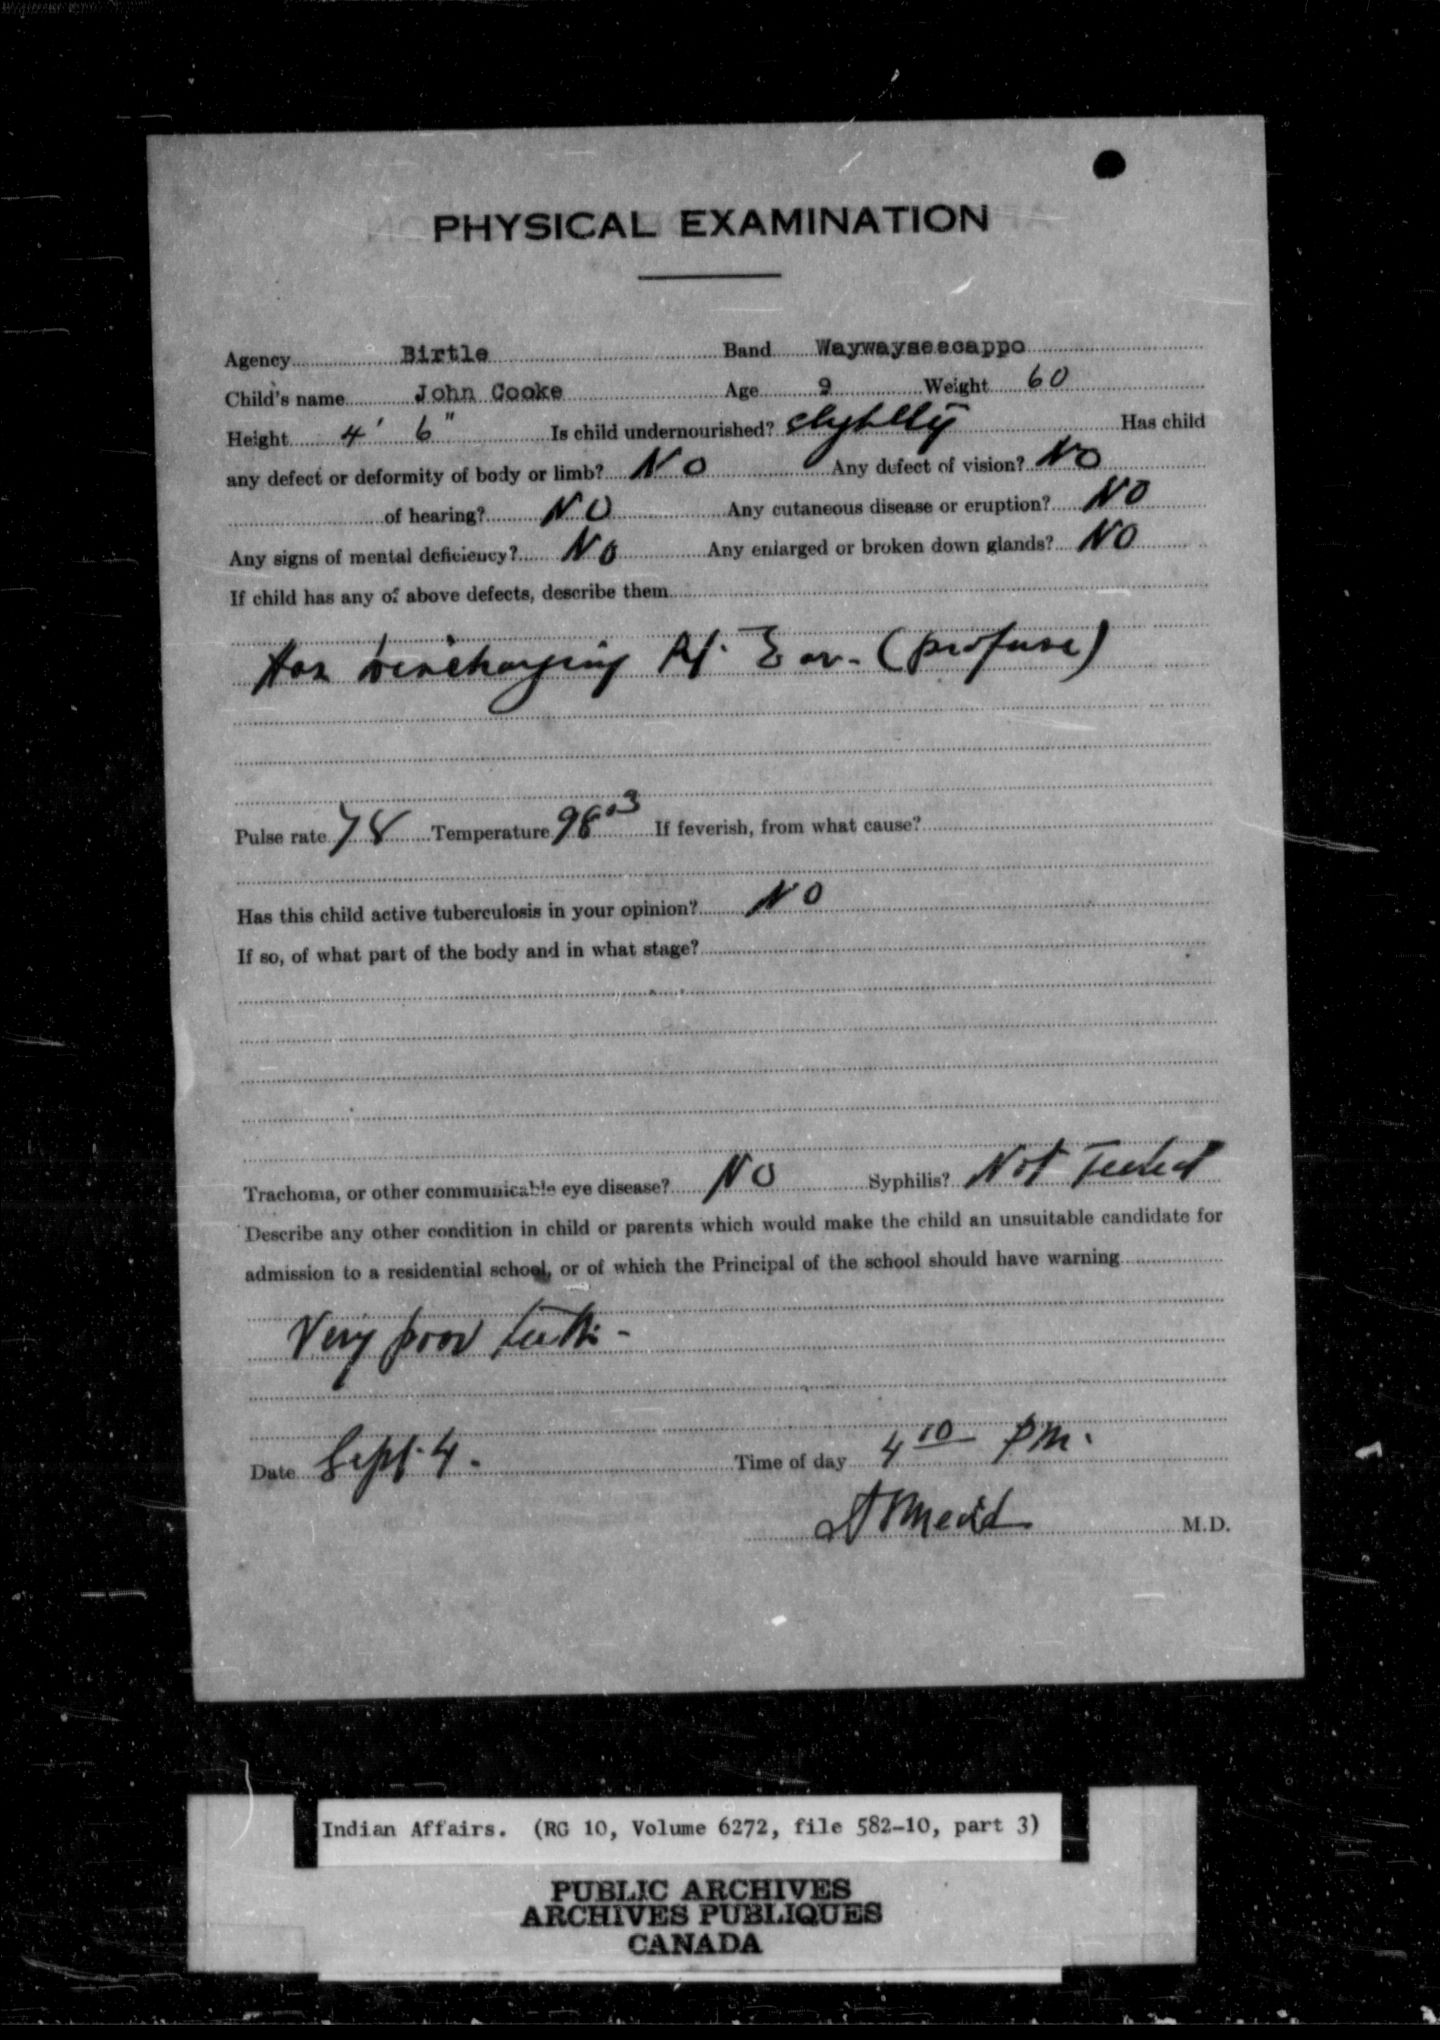 PHYSICAL EXAMINATION
Agency Birtle Band Waywayseecappo
Child's name John Cooke Age 9 Weight 60
Height 4' 6" Is child undernourished? slightly Has child
any defect or deformity of body or limb? No Any defect of vision? No
of hearing? NO Any cutaneous disease or eruption? NO
Any signs of mental deficiency? No Any enlarged or broken down glands? NO
If child has any of above defects, describe them
Has Discharging Rt. Ear. (profuse)
Pulse rate 78 Temperature 98.3 If feverish, from what cause?
Has this child active tuberculosis in your opinion? NO
If so, of what part of the body and in what stage?
Trachoma, or other communicable eye disease? NO Syphilis? Not Tested
Describe any other condition in child or parents which would make the child an unsuitable candidate for
admission to a residential school, or of which the Principal of the school should have warning
Very poor teeth -
Date Sept. 4. Time of day 4 10 PM.
Medd M.D.
Indian Affairs. (RG 10, Volume 6272, file 582-10, part 3)
PUBLIC ARCHIVES
ARCHIVES PUBLIQUES
CANADA